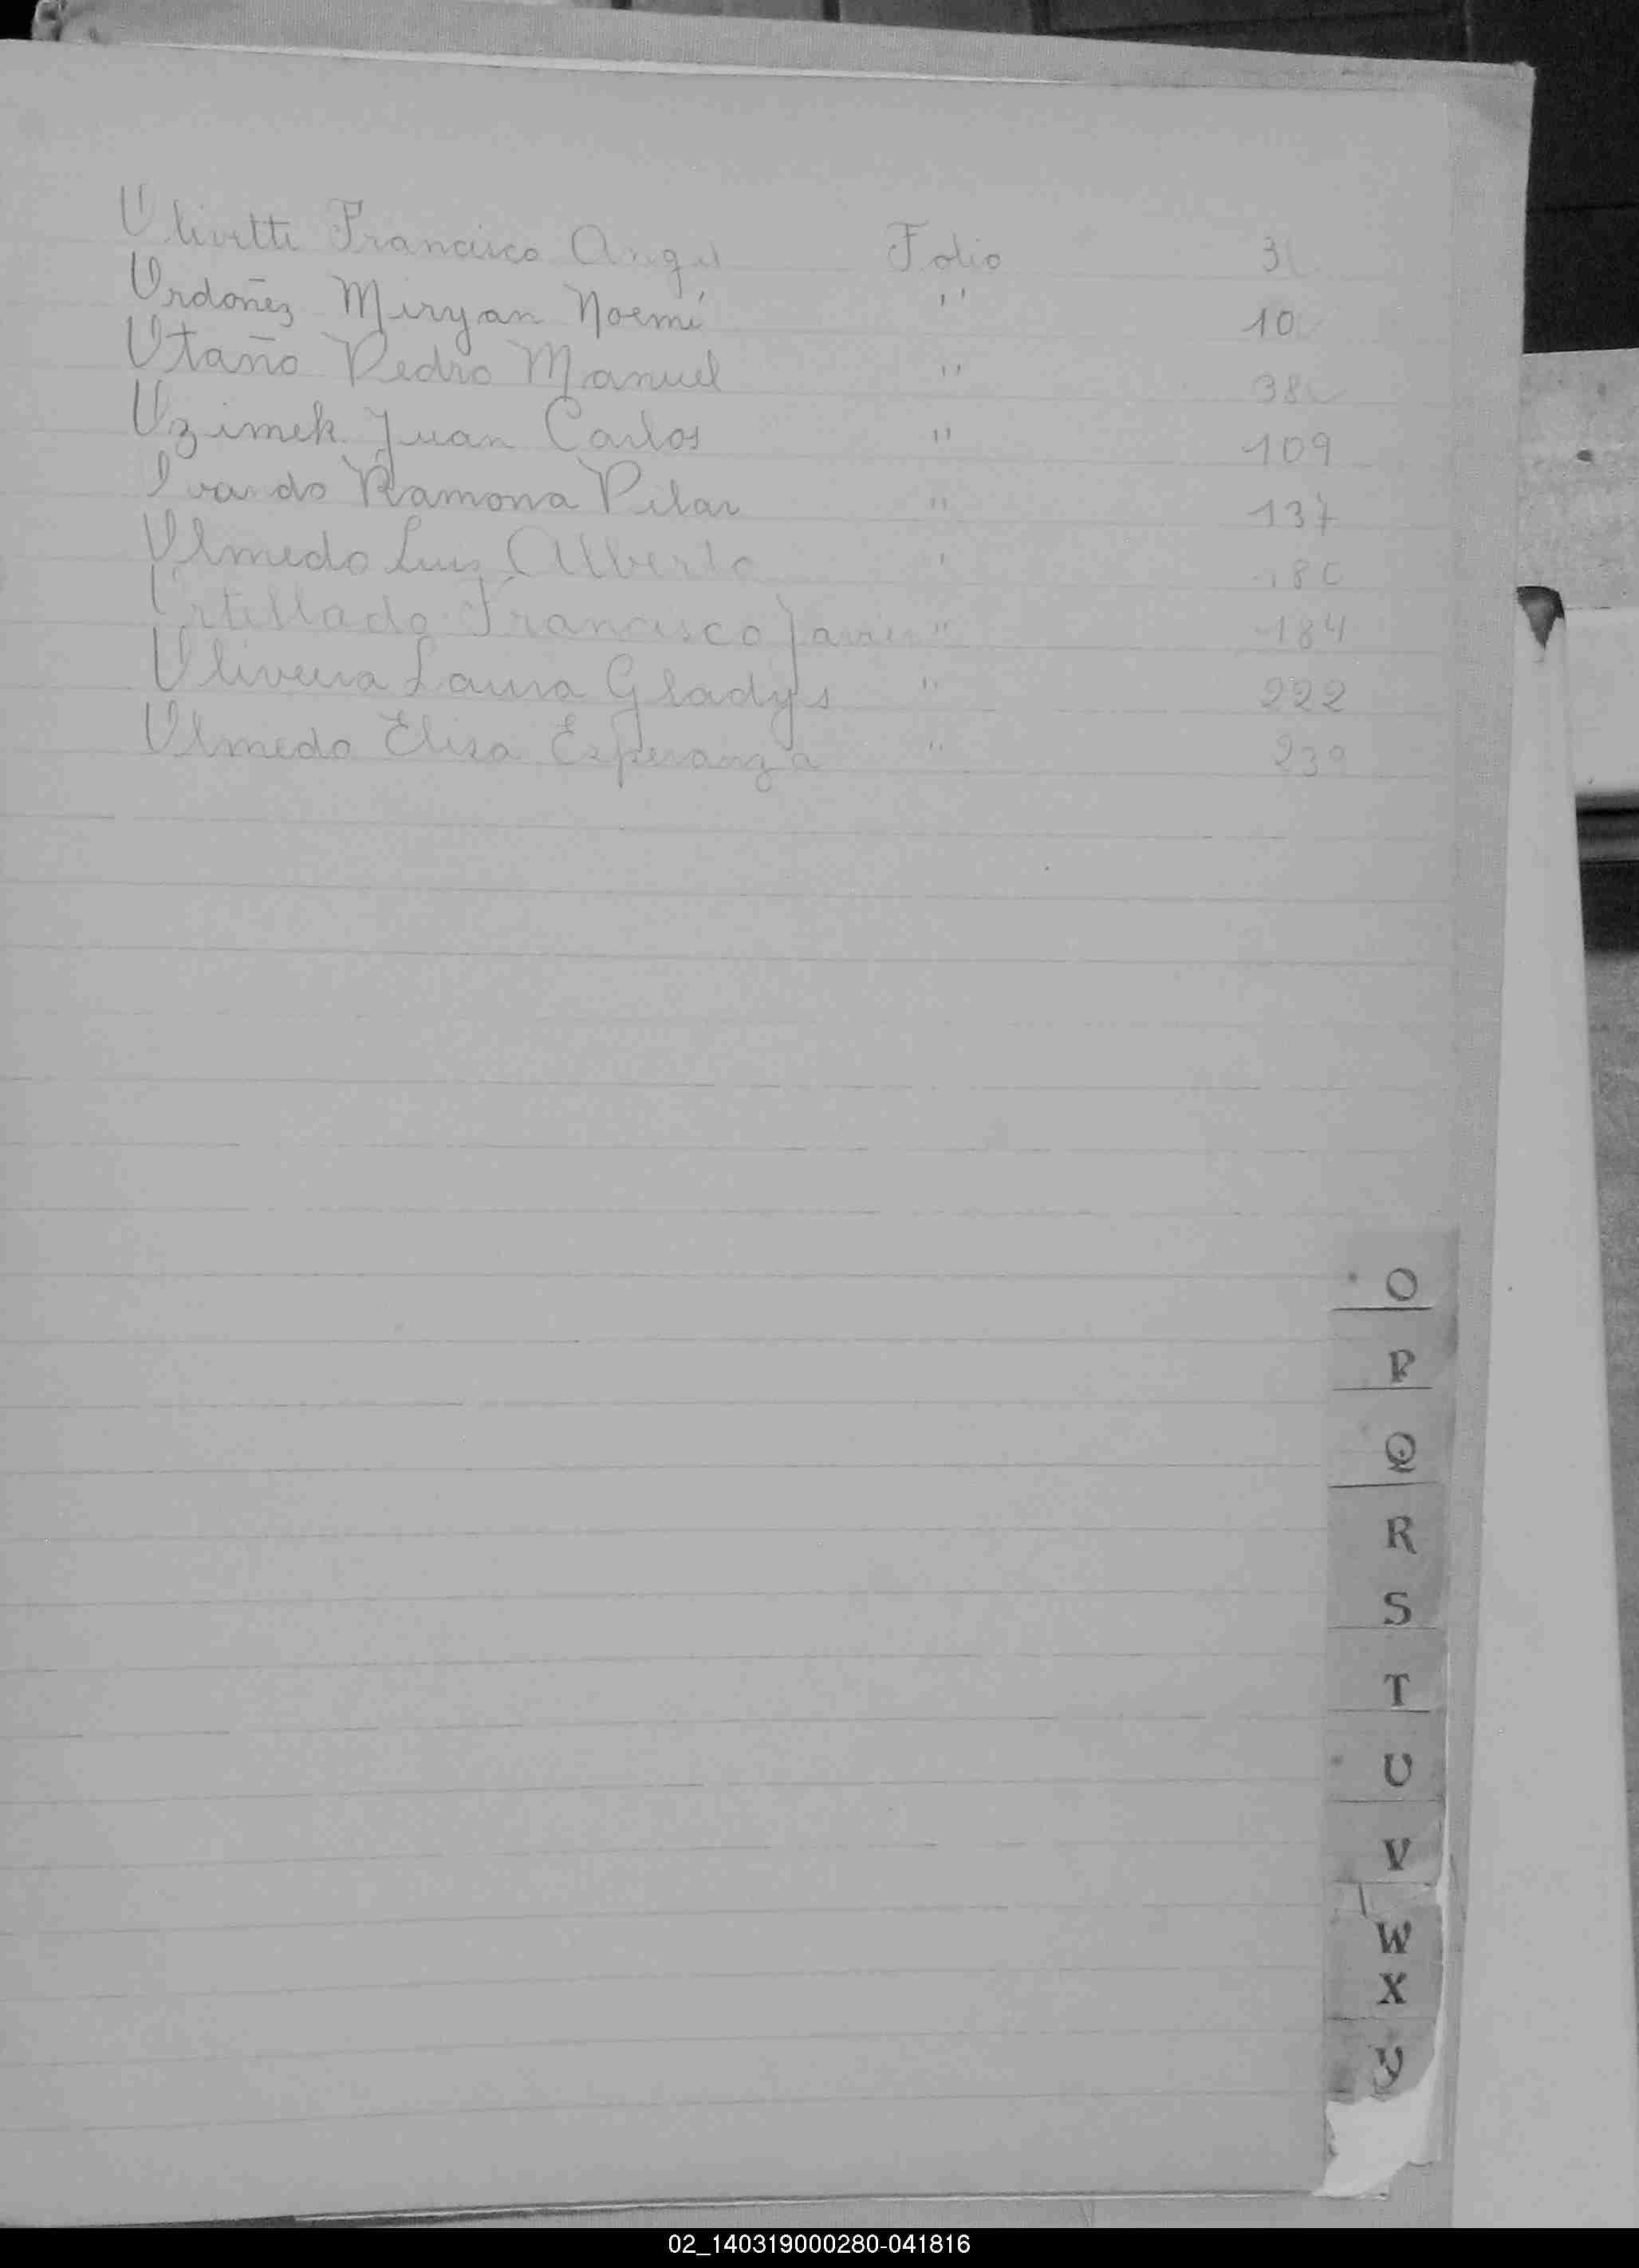 Olivetti Francisco Angel Folio 3
Ordoñez Miryan Noemí " 10
Otaño Pedro Manuel " 38
Ozimek Juan Carlos " 109
Ramona Pilar " 137
Olmedo Luis Alberto " 180
Ortellado Francisco Javier " 184
Oliveira Laura Gladys " 222
Olmedo Elisa Esperanza " 239
O
P
Q
R
S
T
U
V
W
X
Y
02_140319000280-041816